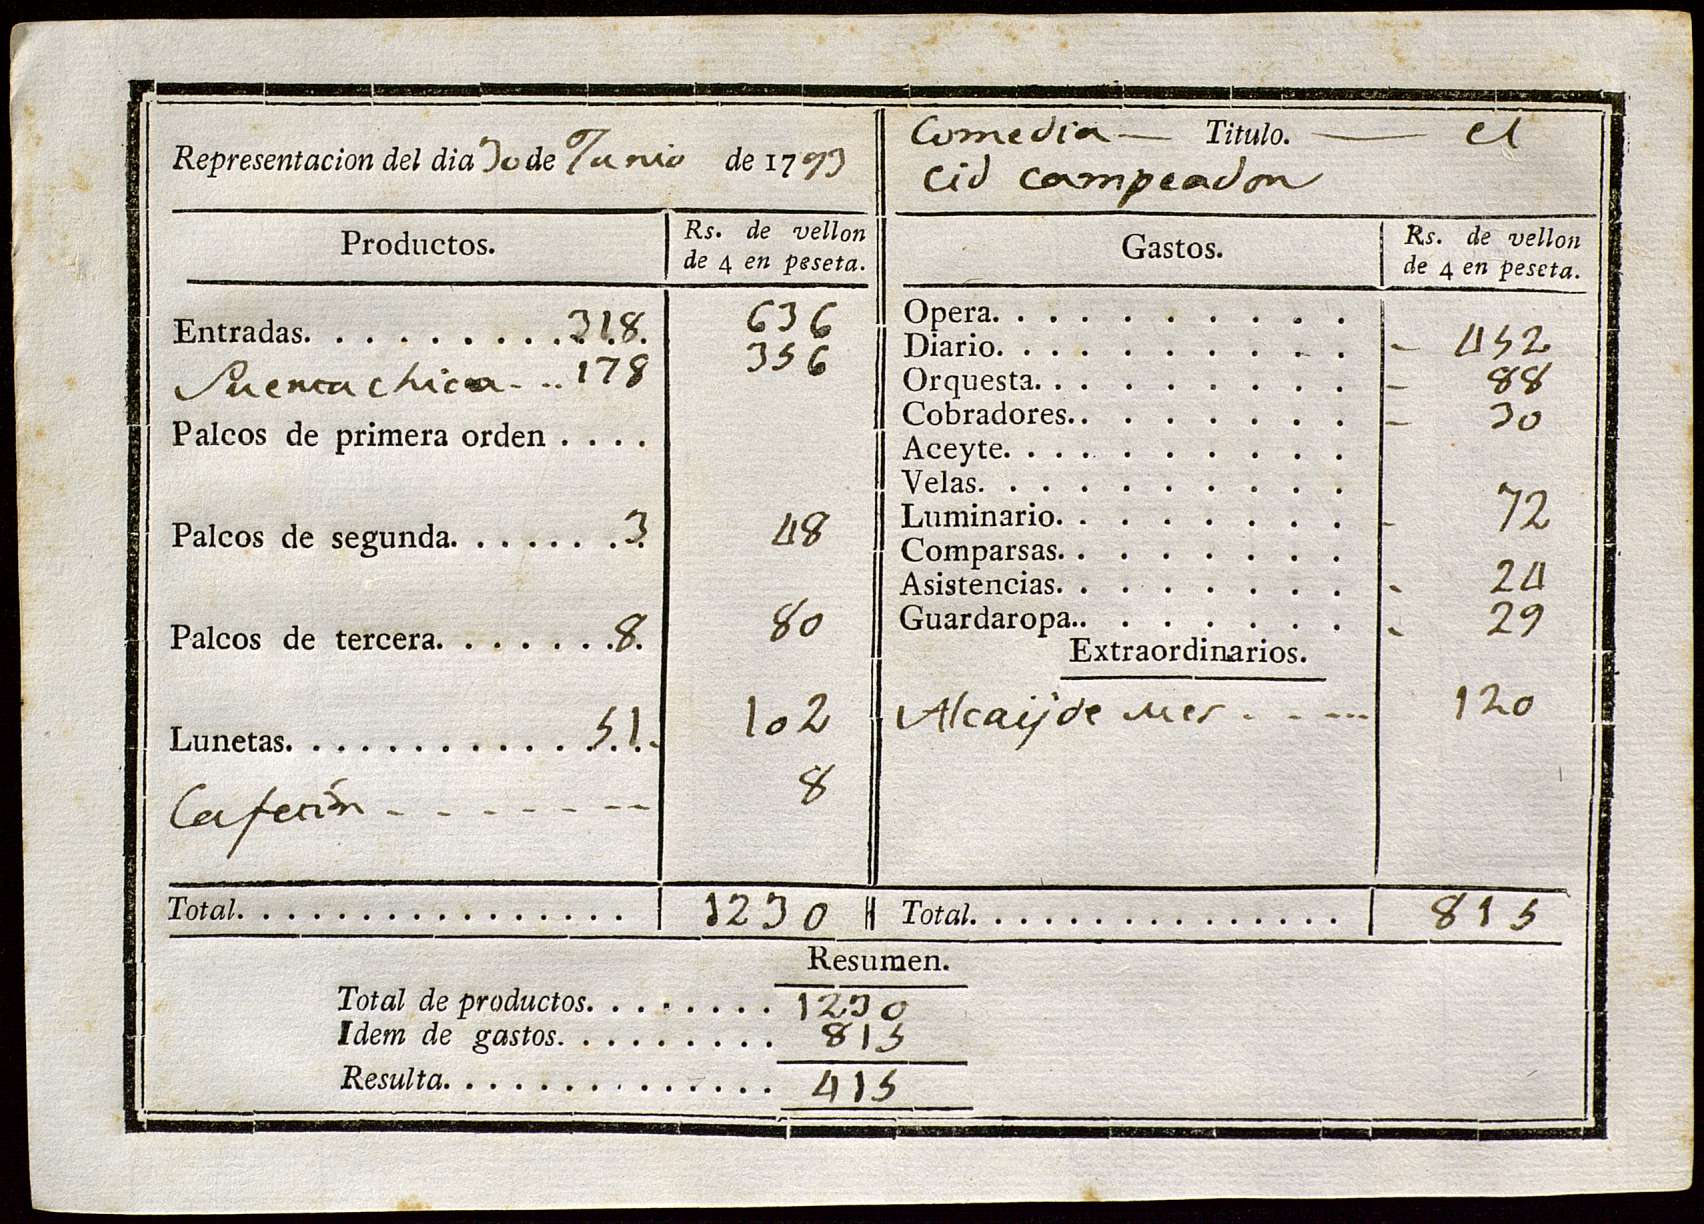 Representacion del dia 30 de Junio de 1793
Comedia — Titulo. — el
Cid campeador
Productos.
Rs. de vellon
de 4 en peseta.
Entradas. . . . . . . . . . 318. 636
Puerta chica - .. 178 356
Palcos de primera orden . . . .
Palcos de segunda. . . . . . . 3. 48
Palcos de tercera. . . . . . . 8. 80
Lunetas. . . . . . . . . . . . 51. 102
Cafetín - - - - - - - 8
Total. . . . . . . . . . . . . . . . 1230
Gastos.
Rs. de vellon
de 4 en peseta.
Opera. . . . . . . . . . .
Diario. . . . . . . . . . . - 452
Orquesta. . . . . . . . . - 88
Cobradores.. . . . . . . . - 30
Aceyte. . . . . . . . . . .
Velas. . . . . . . . . . .
Luminario. . . . . . . . - 72
Comparsas. . . . . . . .
Asistencias. . . . . . . . - 24
Guardaropa.. . . . . . . - 29
Extraordinarios.
Alcaijde mes - - --- 120
Total. . . . . . . . . . . . . . . . 815
Resumen.
Total de productos. . . . . . . . 1230
Idem de gastos. . . . . . . . . 815
Resulta. . . . . . . . . . . . . . 415